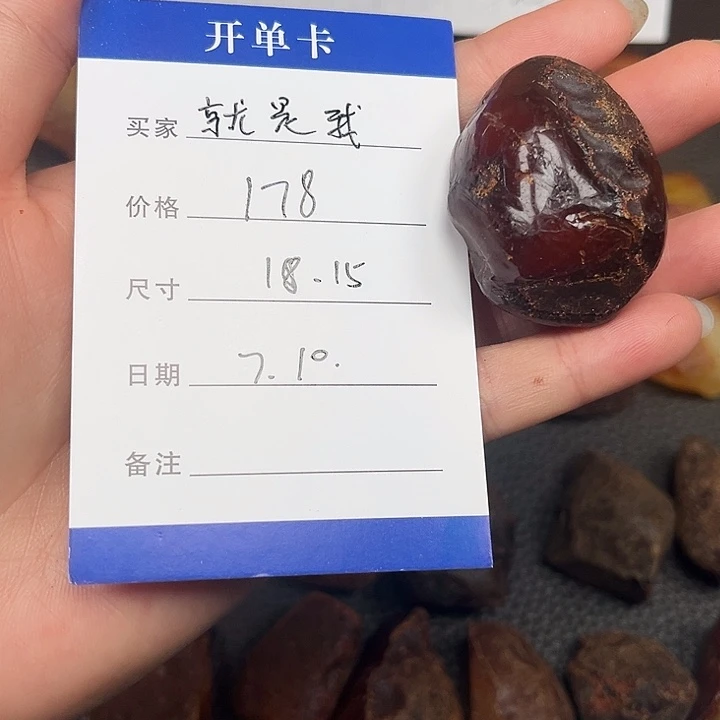 开单卡
买家 就是我
价格 178
尺寸 18.15
日期 7.10.
备注